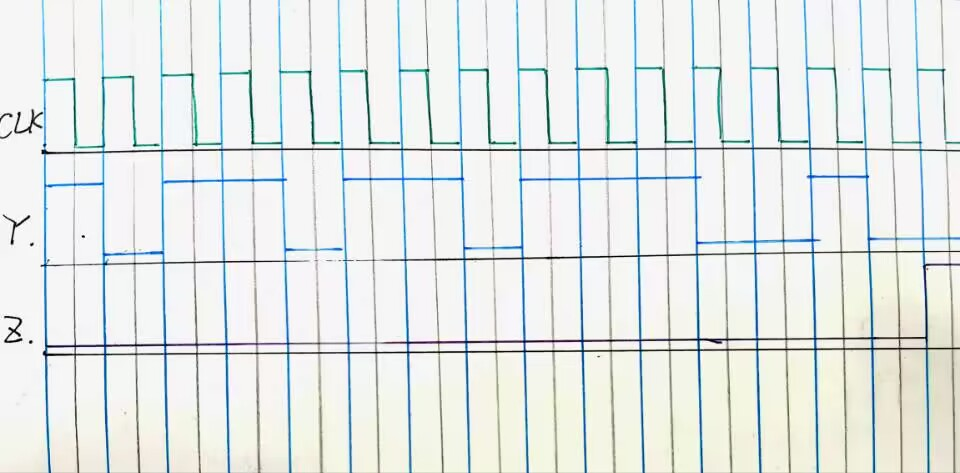 CLK
Y.
Z.